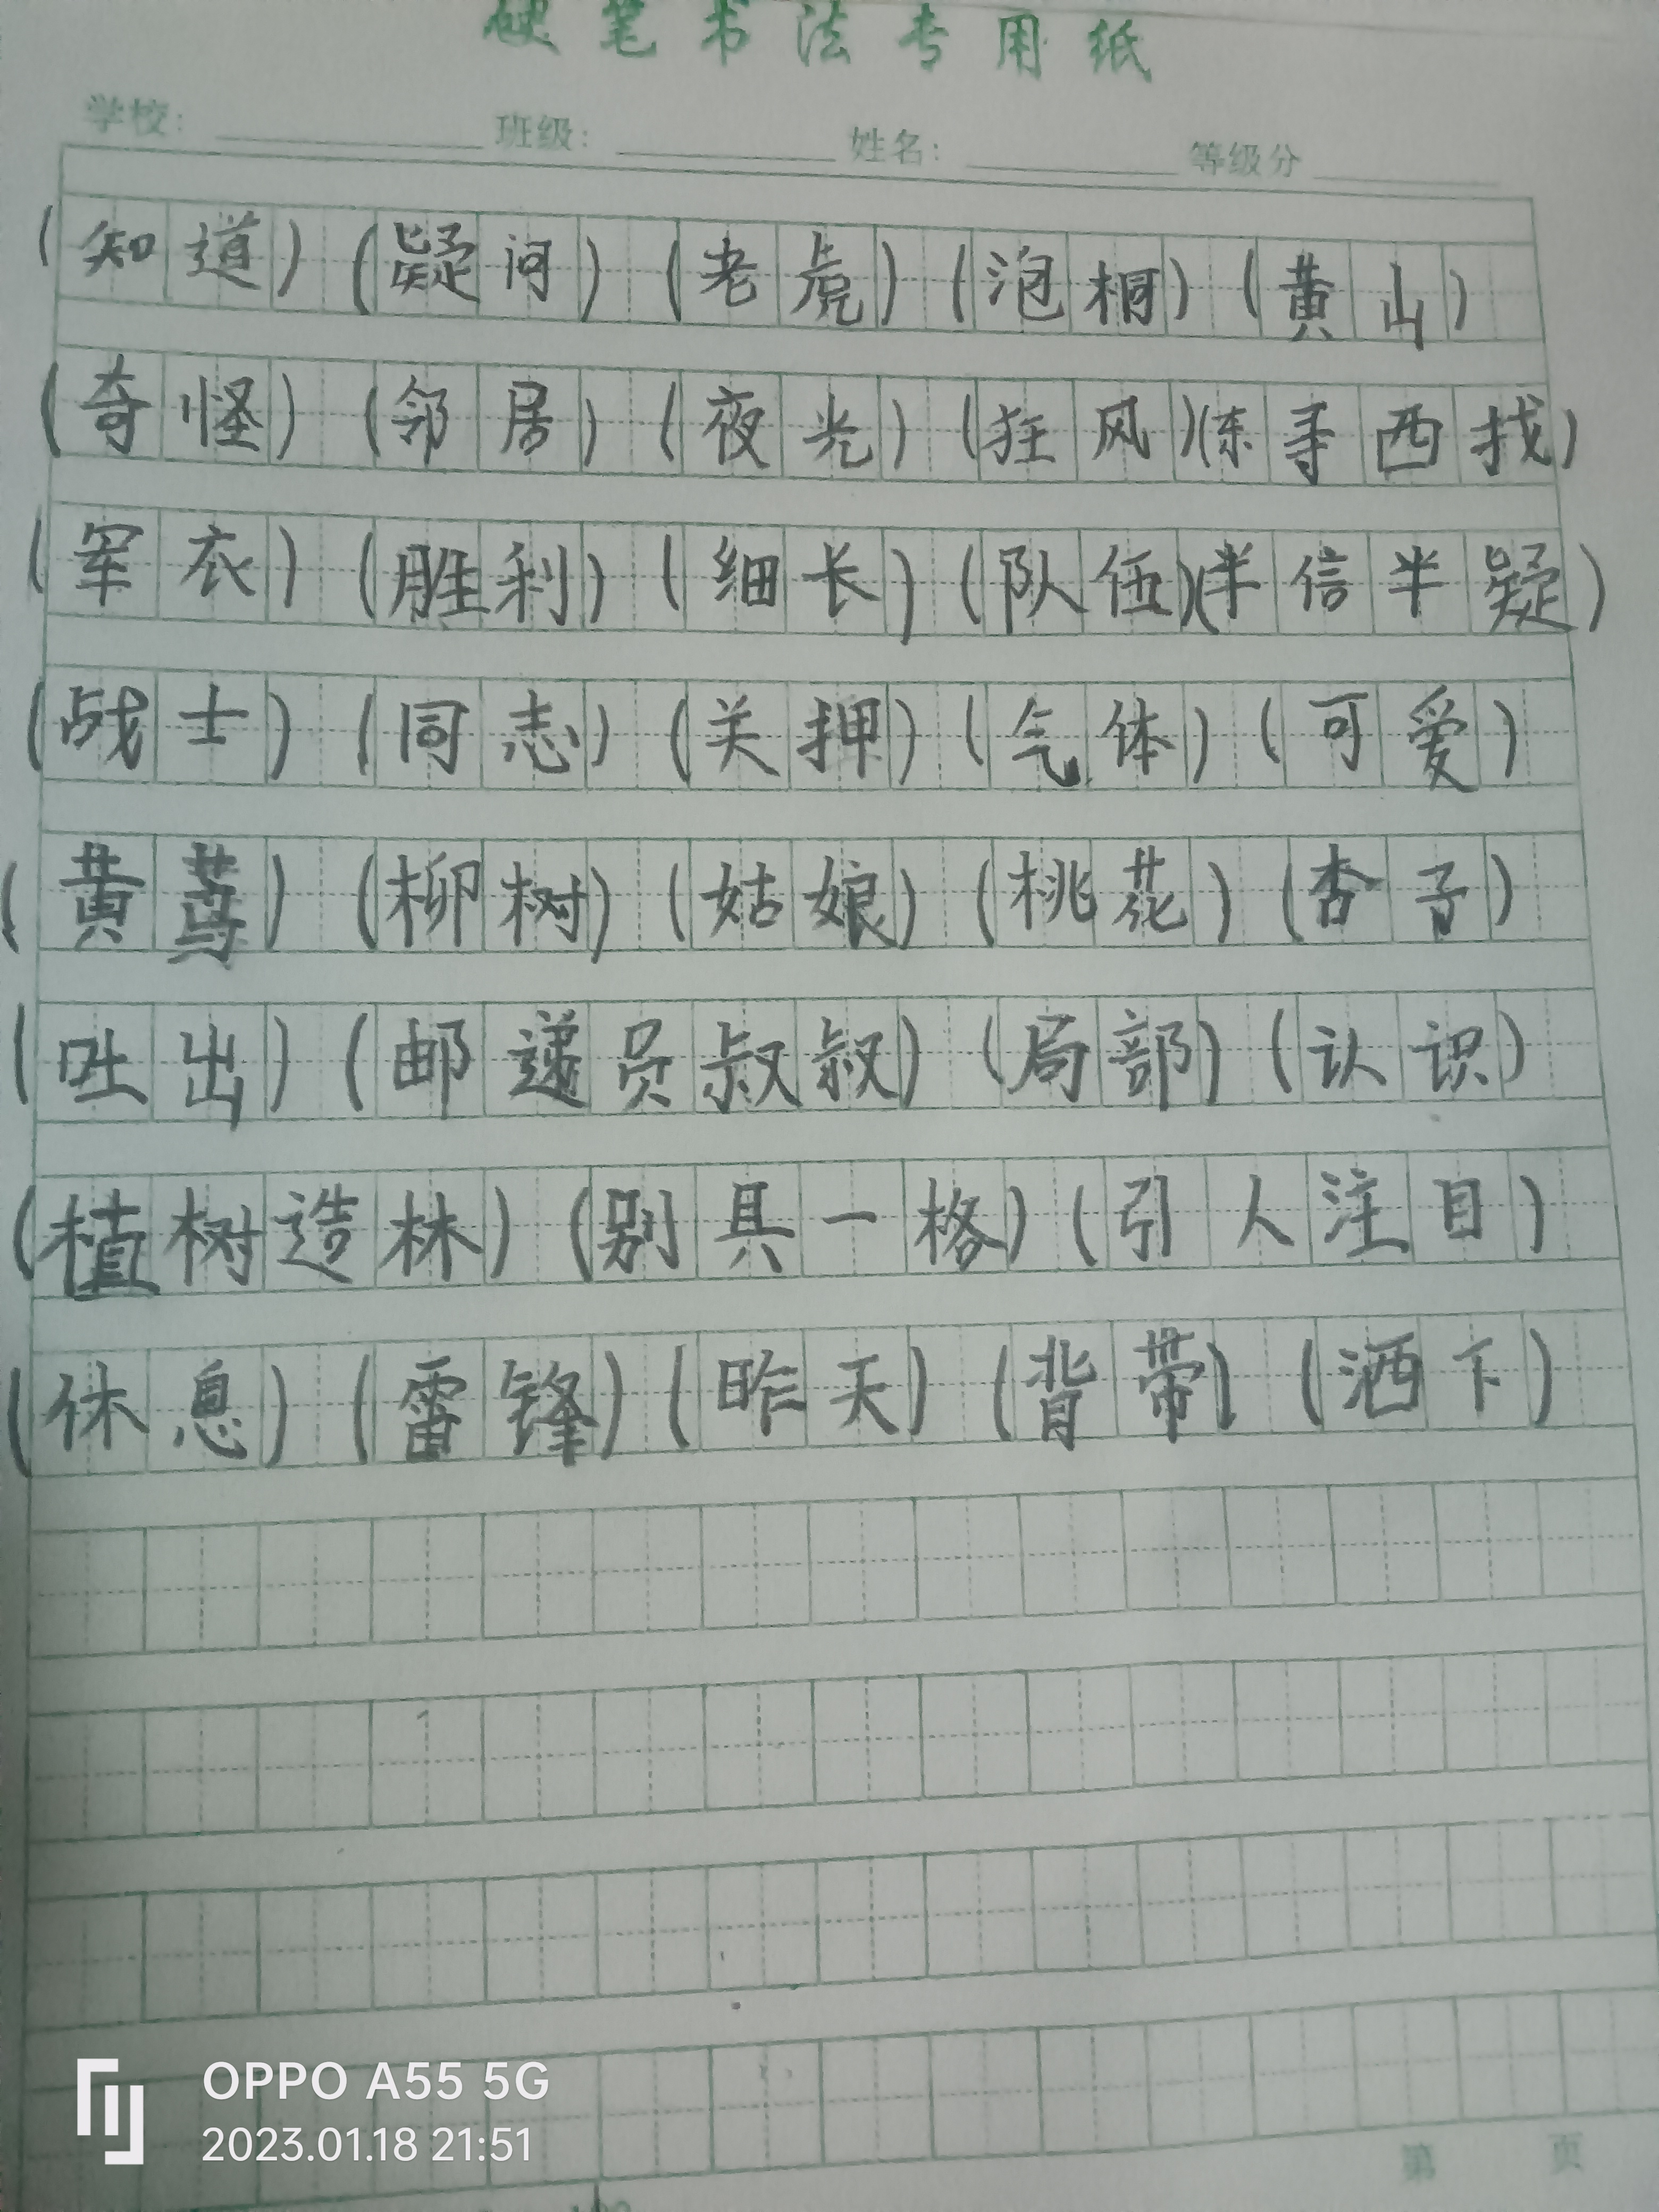 硬笔书法专用纸
学校： 班级： 姓名： 等级分
（知道）（疑问）（老虎）（泡桐）（黄山）
（奇怪）（邻居）（夜光）（狂风）（东寻西找）
（军衣）（胜利）（细长）（队伍）（半信半疑）
（战士）（同志）（关押）（气体）（可爱）
（黄莺）（柳树）（姑娘）（桃花）（杏子）
（吐出）（邮递员叔叔）（局部）（认识）
（植树造林）（别具一格）（引人注目）
（休息）（雷锋）（昨天）（背带）（洒下）
OPPO A55 5G
2023.01.18 21:51
第 页